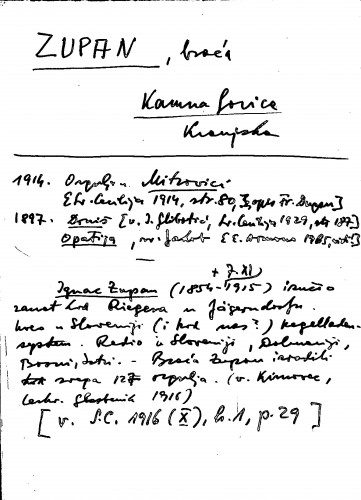 ZUPAN, braća
Kamna Gorica
Kranjska
1914. Orgulje u Mitrovici
Sv. Cecilija 1914, str. 80, opis Fr. Dugan]
1897. [v. J. Glibotić, Sv. Cecilija 1929, str 187]
Opatija, sv. Jakob
+ 7.XI
Ignac Zupan (1854-1915) izučio
zanat kod Riegera u Jägerndorfu.
uveo u Sloveniji (i kod nas?) kegelladen-
system. Radio u Sloveniji, Dalmaciji,
Bosni, Istri. - Braća Zupan izradili
svega 127 orgulja. (v. Kimovec,
Cerkv. Glasbenik 1916)
[v. S.C. 1916 (X), br. 1, p. 29]